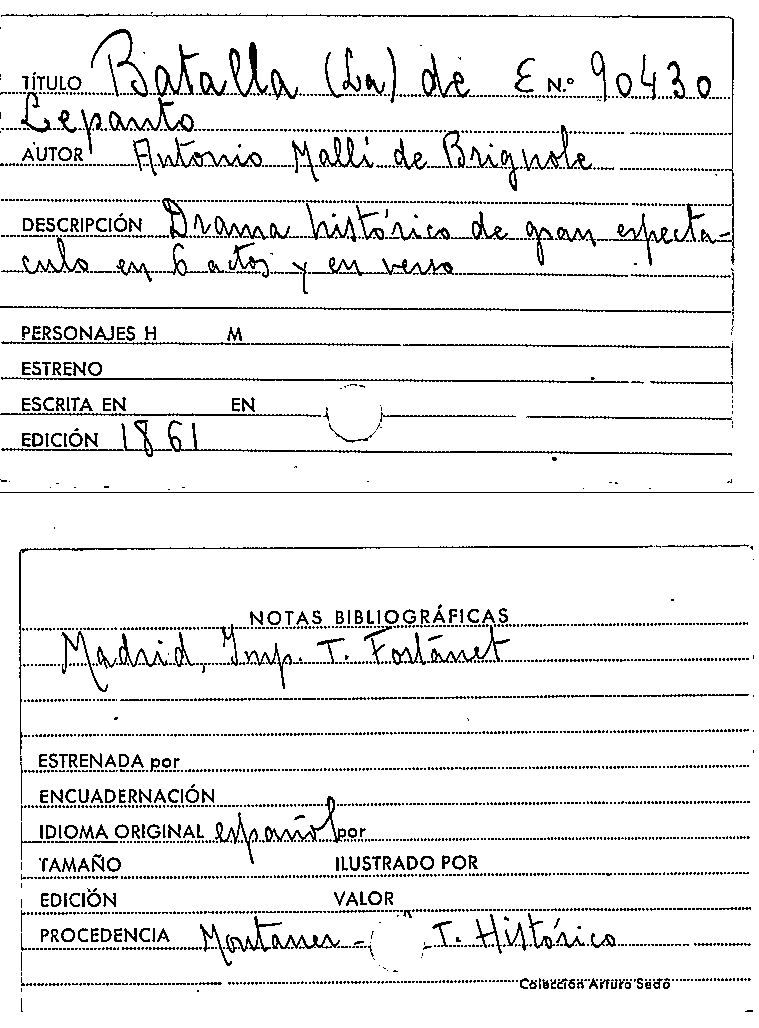 TÍTULO Batalla (La) de E N.º 90430
Lepanto
AUTOR Antonio Mallí de Brignole
DESCRIPCIÓN Drama histórico de gran especta-
culo en 6 actos y en verso
PERSONAJES H M
ESTRENO
ESCRITA EN EN
EDICIÓN 1861
NOTAS BIBLIOGRÁFICAS
Madrid, Imp. T. Fortanet
ESTRENADA por
ENCUADERNACIÓN
IDIOMA ORIGINAL español por
TAMAÑO ILUSTRADO POR
EDICIÓN VALOR
PROCEDENCIA Montaner - T. Histórico
Colección Arturo Sedó